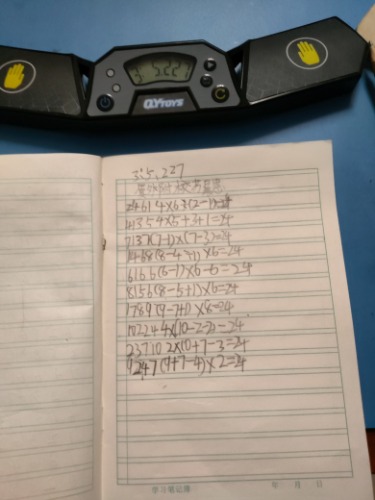 3:5.227
QYTOYS
3:5.227
2461 4×6÷(2-1)=24
4135 4×5+3+1=24
7137(7-1)×(7-3)=24
1468(8-4÷1)×6=24
6166(6-1)×6-6=24
8156(8-5+1)×6=24
1789(9-7+1)×8=24
102244×(10-2-2)=24
237102×(10+7-3=24
9247(9+7-4)×2=24
学习笔记簿
年 月 日